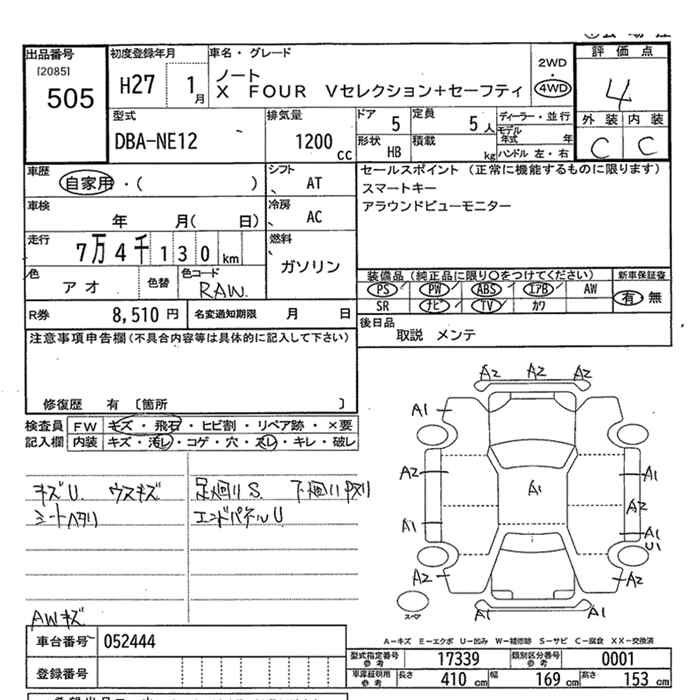 出品番号
[2085]
505
初度登録年月
H27 1月
車名・グレード
ノート
X FOUR Vセレクション+セーフティ
2WD
・
4WD
評価点
4
外装 内装
C C
型式
DBA-NE12
排気量
1200 cc
ドア
5
定員
5人
形状
HB
積載
kg
ディーラー・並行
モデル年式 年
ハンドル 左・右
車歴
自家用・( )
シフト
AT
車検
年 月( 日)
冷房
AC
走行
7万4千130km
燃料
ガソリン
色
アオ
色替
色コード
RAW
R券
8,510円
名変通知期限 月 日
セールスポイント (正常に機能するものに限ります)
スマートキー
アラウンドビューモニター
装備品 (純正品に限り○をつけてください)
新車保証書
PS PW ABS エアB AW
SR ナビ TV カワ
有・無
後日品
取説 メンテ
注意事項申告欄(不具合内容等は具体的に記入して下さい)
修復歴 有 〔箇所 〕
検査員記入欄
FW キズ・飛石・ヒビ割・リペア跡・×要
内装 キズ・汚レ・コゲ・穴・スレ・キレ・破レ
キズU. ウスキズ
シートヘタリ
足廻りS. 下廻り
エンドパネルU
AWキズ
A2 A2 A2
A1
A2 A1 A1
A2
A1 A1
U1
A2 A2
スペア
A1 A1
A-キズ E-エクボ U-凹み W-補修跡 S-サビ C-腐食 XX-交換済
車台番号
052444
登録番号
型式指定番号 参考
17339
類別区分番号 参考
0001
車庫証明用 参考
長さ 410 cm 幅 169 cm 高さ 153 cm